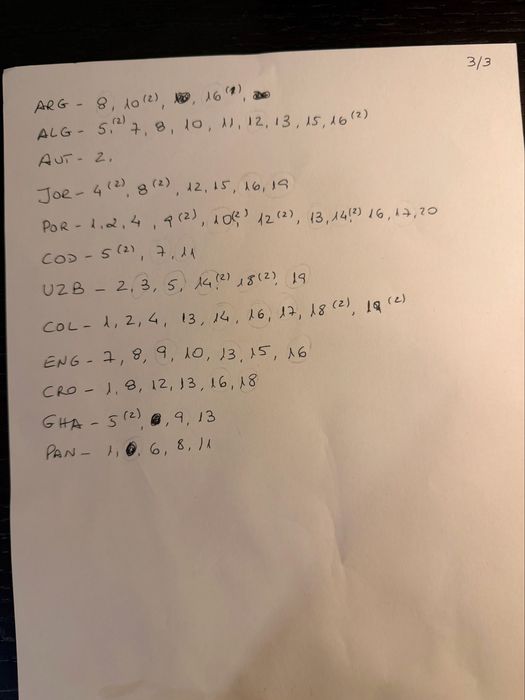 3/3
ARG - 8, 10(2), 16(2),
ALG - 5,(2) 7, 8, 10, 11, 12, 13, 15, 16(2)
AUT - 2.
JOR - 4(2), 8(2), 12, 15, 16, 19
POR - 1, 2, 4, 9(2), 10(2) 12(2), 13, 14(2) 16, 17, 20
COD - 5(2), 7, 11
UZB - 2, 3, 5, 14(2) 18(2), 19
COL - 1, 2, 4, 13, 14, 16, 17, 18(2), 19(2)
ENG - 7, 8, 9, 10, 13, 15, 16
CRO - 1, 8, 12, 13, 16, 18
GHA - 5(2), 9, 13
PAN - 1, 6, 8, 11